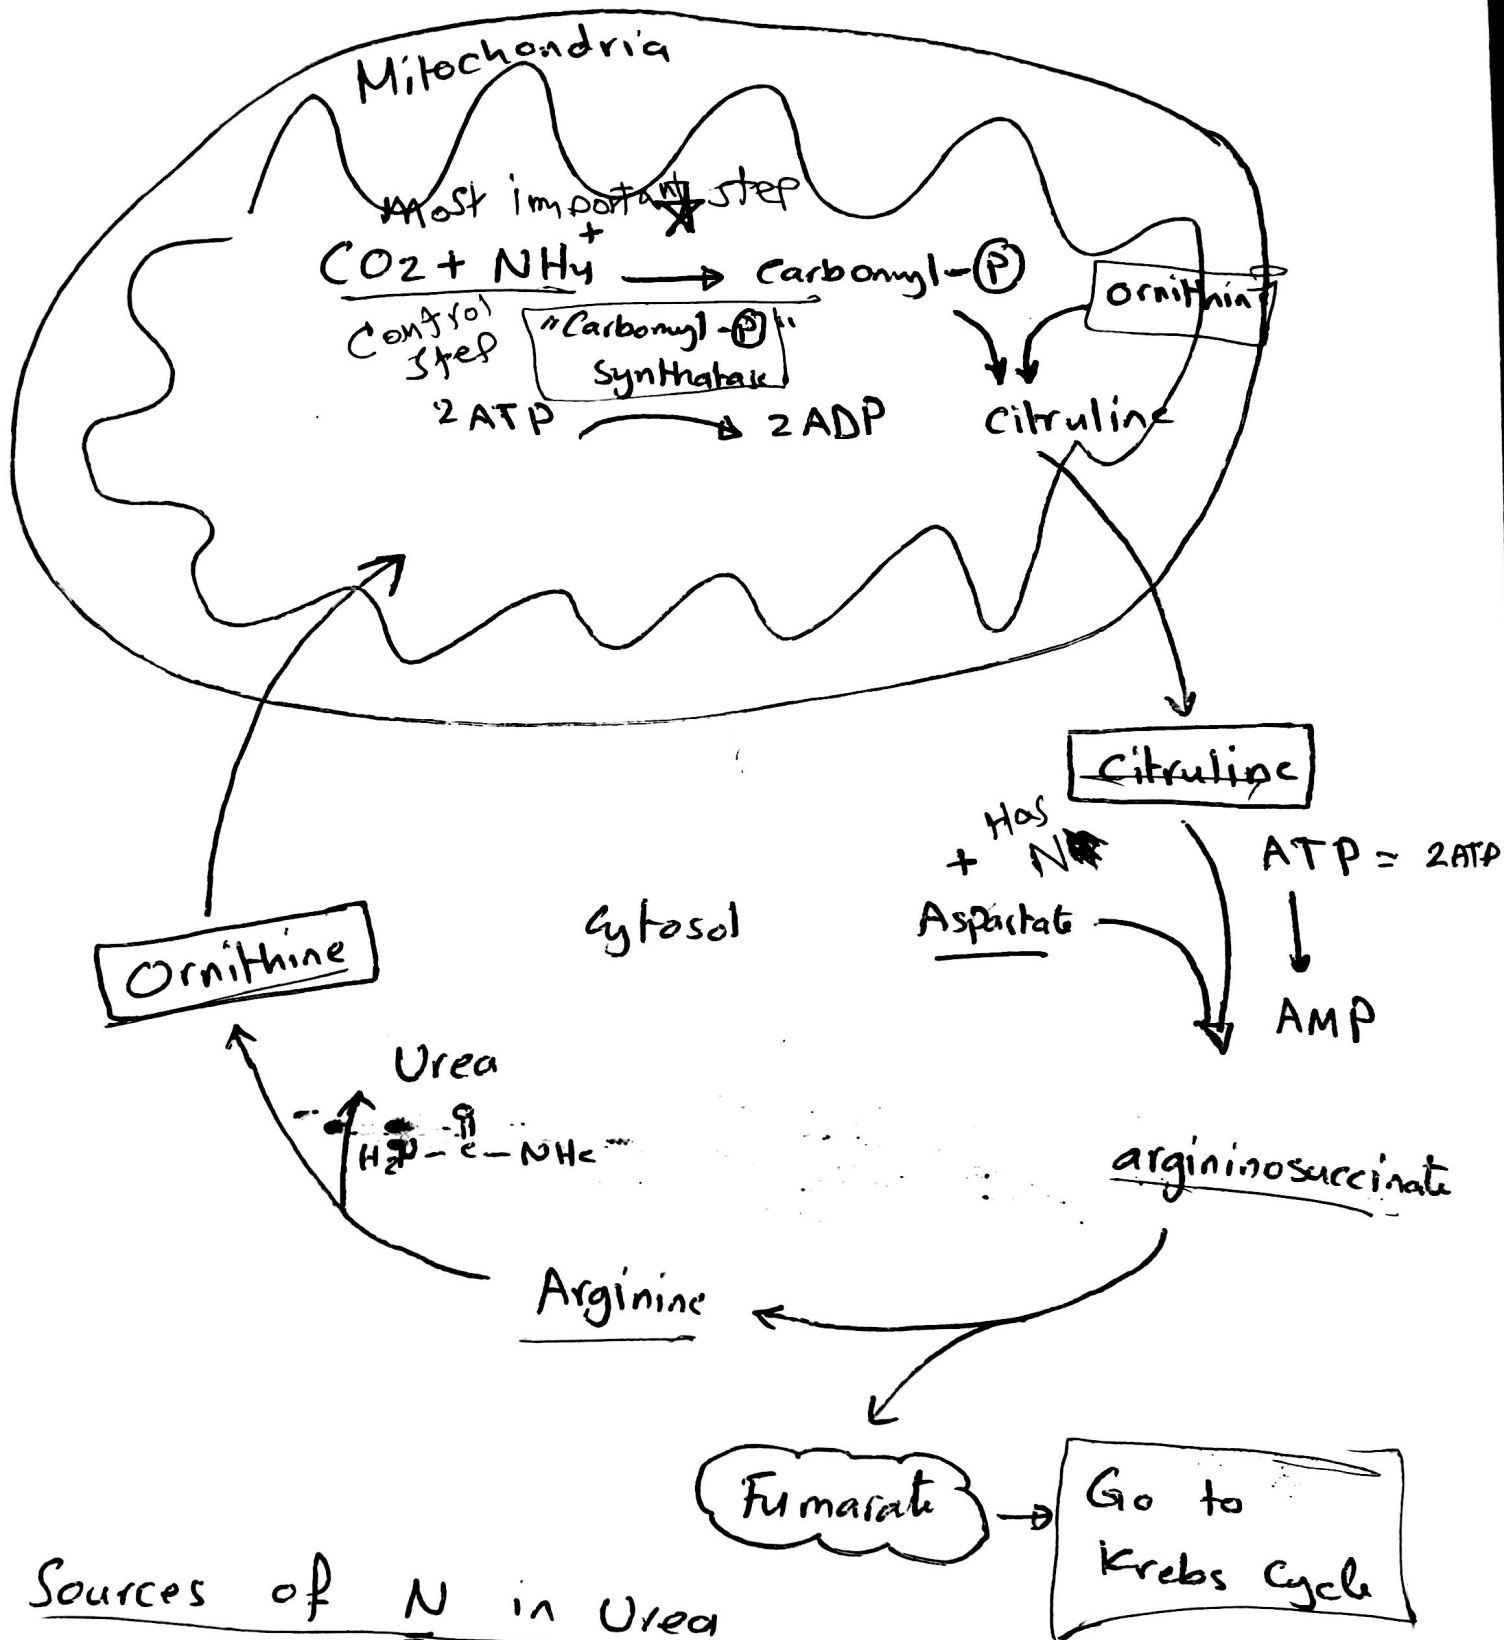 Mitochondria
Most important step
CO2 + NH4+ → Carbomyl-Ⓟ
Ornithin
Control
step
"Carbomyl-Ⓟ"
Synthatase
2 ATP → 2 ADP
Citruline
Citruline
Has
+ N
ATP = 2ATP
Aspartate
AMP
Cytosol
Ornithine
Urea
O
argininosuccinate
Arginine
Fumarate → Go to
Krebs Cycle
Sources of N in Urea